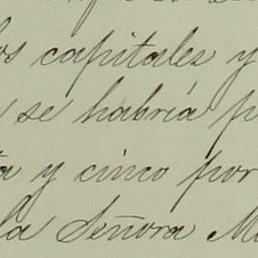 os capitales y
se habría p
ta y cinco por
la Señora M